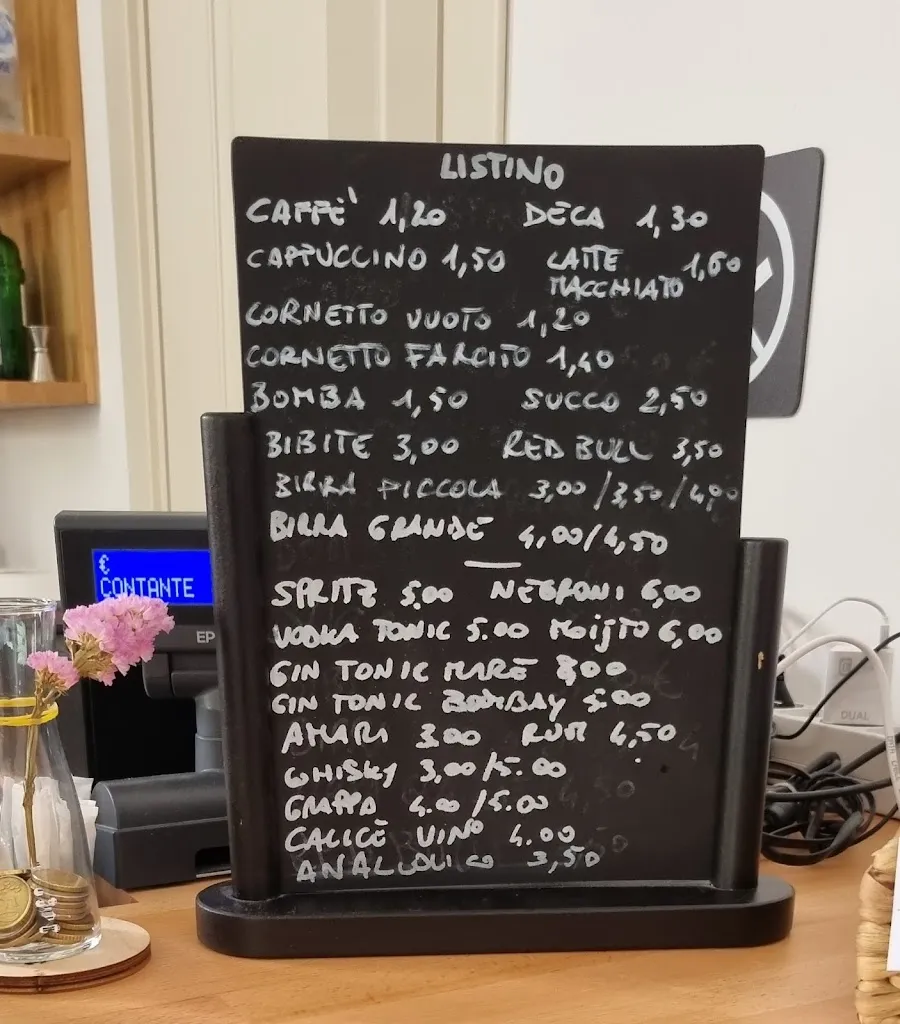 LISTINO
CAFFÈ 1,20 DECA 1,30
CAPPUCCINO 1,50 LATTE MACCHIATO 1,60
CORNETTO VUOTO 1,20
CORNETTO FARCITO 1,40
BOMBA 1,50 SUCCO 2,50
BIBITE 3,00 RED BULL 3,50
BIRRA PICCOLA 3,00/3,50/4,00
BIRRA GRANDE 4,00/4,50
SPRITZ 5.00 NEGRONI 6,00
VODKA TONIC 5.00 MOIJTO 6,00
GIN TONIC MARE 8,00
GIN TONIC BOMBAY 5.00
AMARI 3.00 RUM 4,50
WHISKY 3,00/5.00
GRAPPA 4.00/5.00
CALICE VINO 4.00
ANALCOLICO 3,50
€
CONTANTE
EP
DUAL